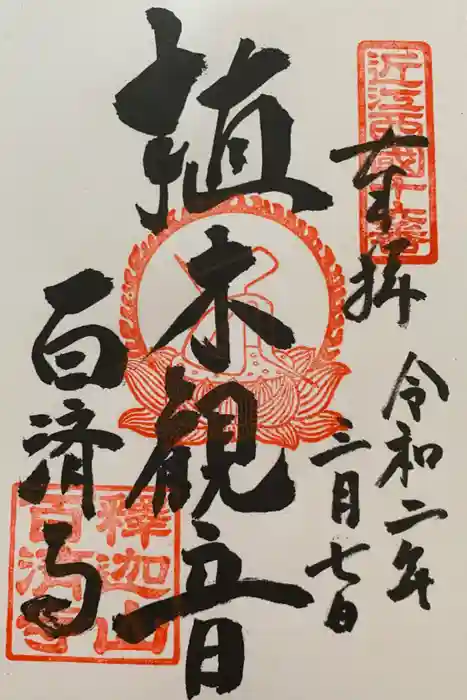 近江西国十六番
奉拝
令和二年
三月七日
植木観音
百済寺
釋迦山
百済寺